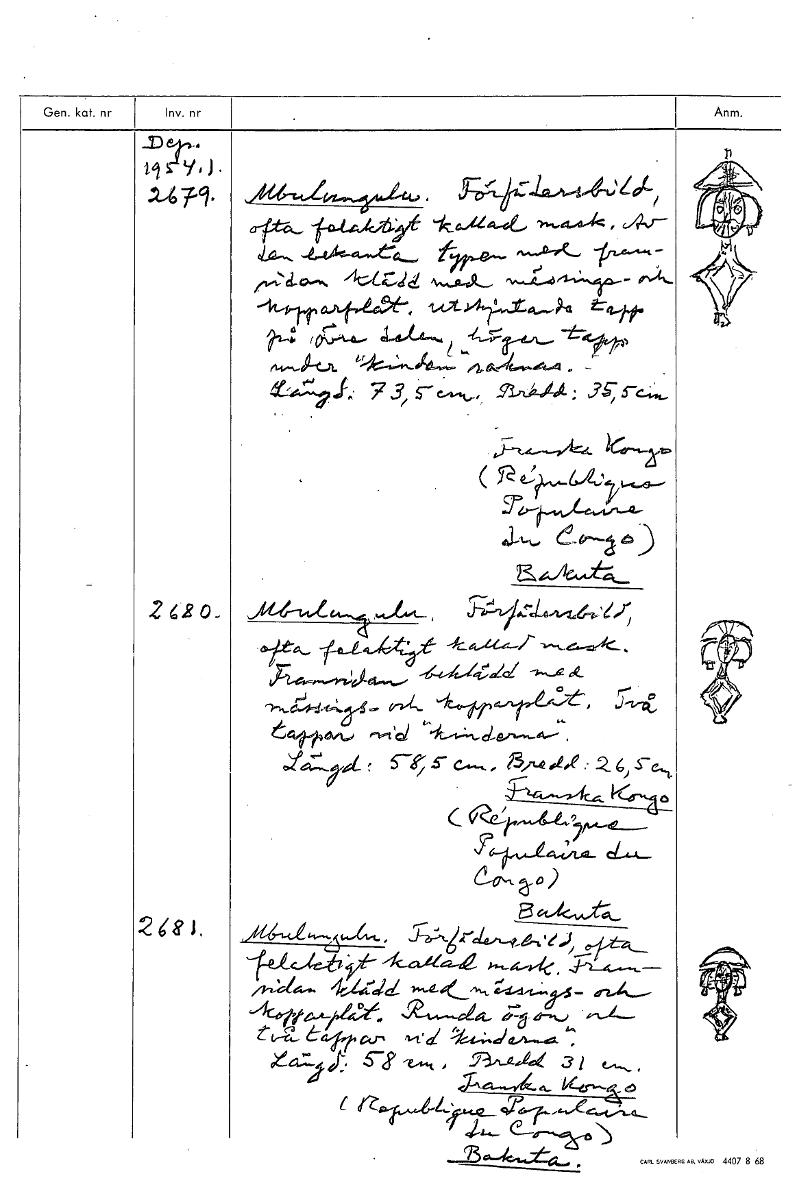 Gen. kat. nr Inv. nr Anm.
Dep.
1954.1.
2679. Mbulungulu. Förfädersbild,
ofta felaktigt kallad mask. Av
den bekanta typen med fram-
sidan klädd med mässings- och
kopparplåt. Utskjutande tapp
på övre delen, höger tapp
under "kinden" saknas. -
Längd: 73,5 cm. Bredd: 35,5 cm
Franska Kongo
(République
Populaire
du Congo)
Bakuta
2680. Mbulungulu. Förfädersbild,
ofta felaktigt kallad mask.
Framsidan beklädd med
mässings- och kopparplåt. Två
tappar vid "kinderna".
Längd: 58,5 cm. Bredd: 26,5 cm
Franska Kongo
(République
Populaire du
Congo)
Bakuta
2681. Mbulungulu. Förfädersbild, ofta
felaktigt kallad mask. Fram-
sidan klädd med mässings- och
kopparplåt. Runda ögon och
två tappar vid "kinderna".
Längd: 58 cm. Bredd 31 cm.
Franska Kongo
(Republique Populaire
du Congo)
Bakuta.
CARL SVANBERG AB, VÄXJÖ 4407 8 68